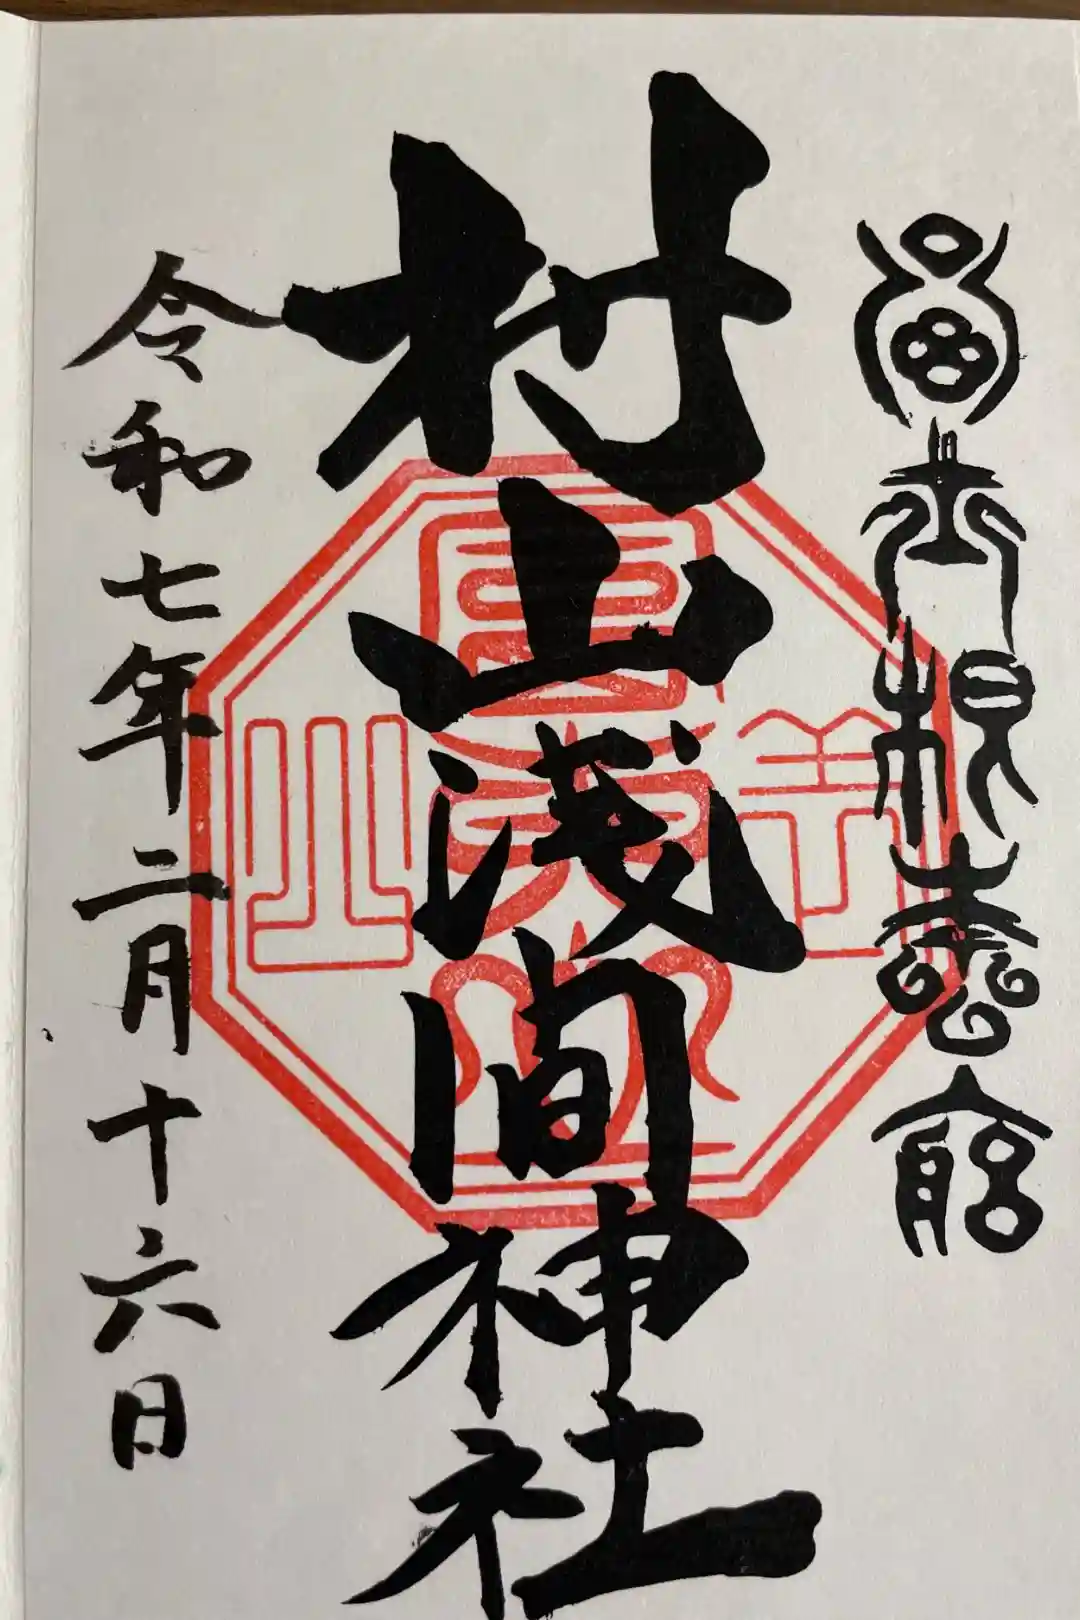 富士根本宮
村山浅間神社
令和七年二月十六日